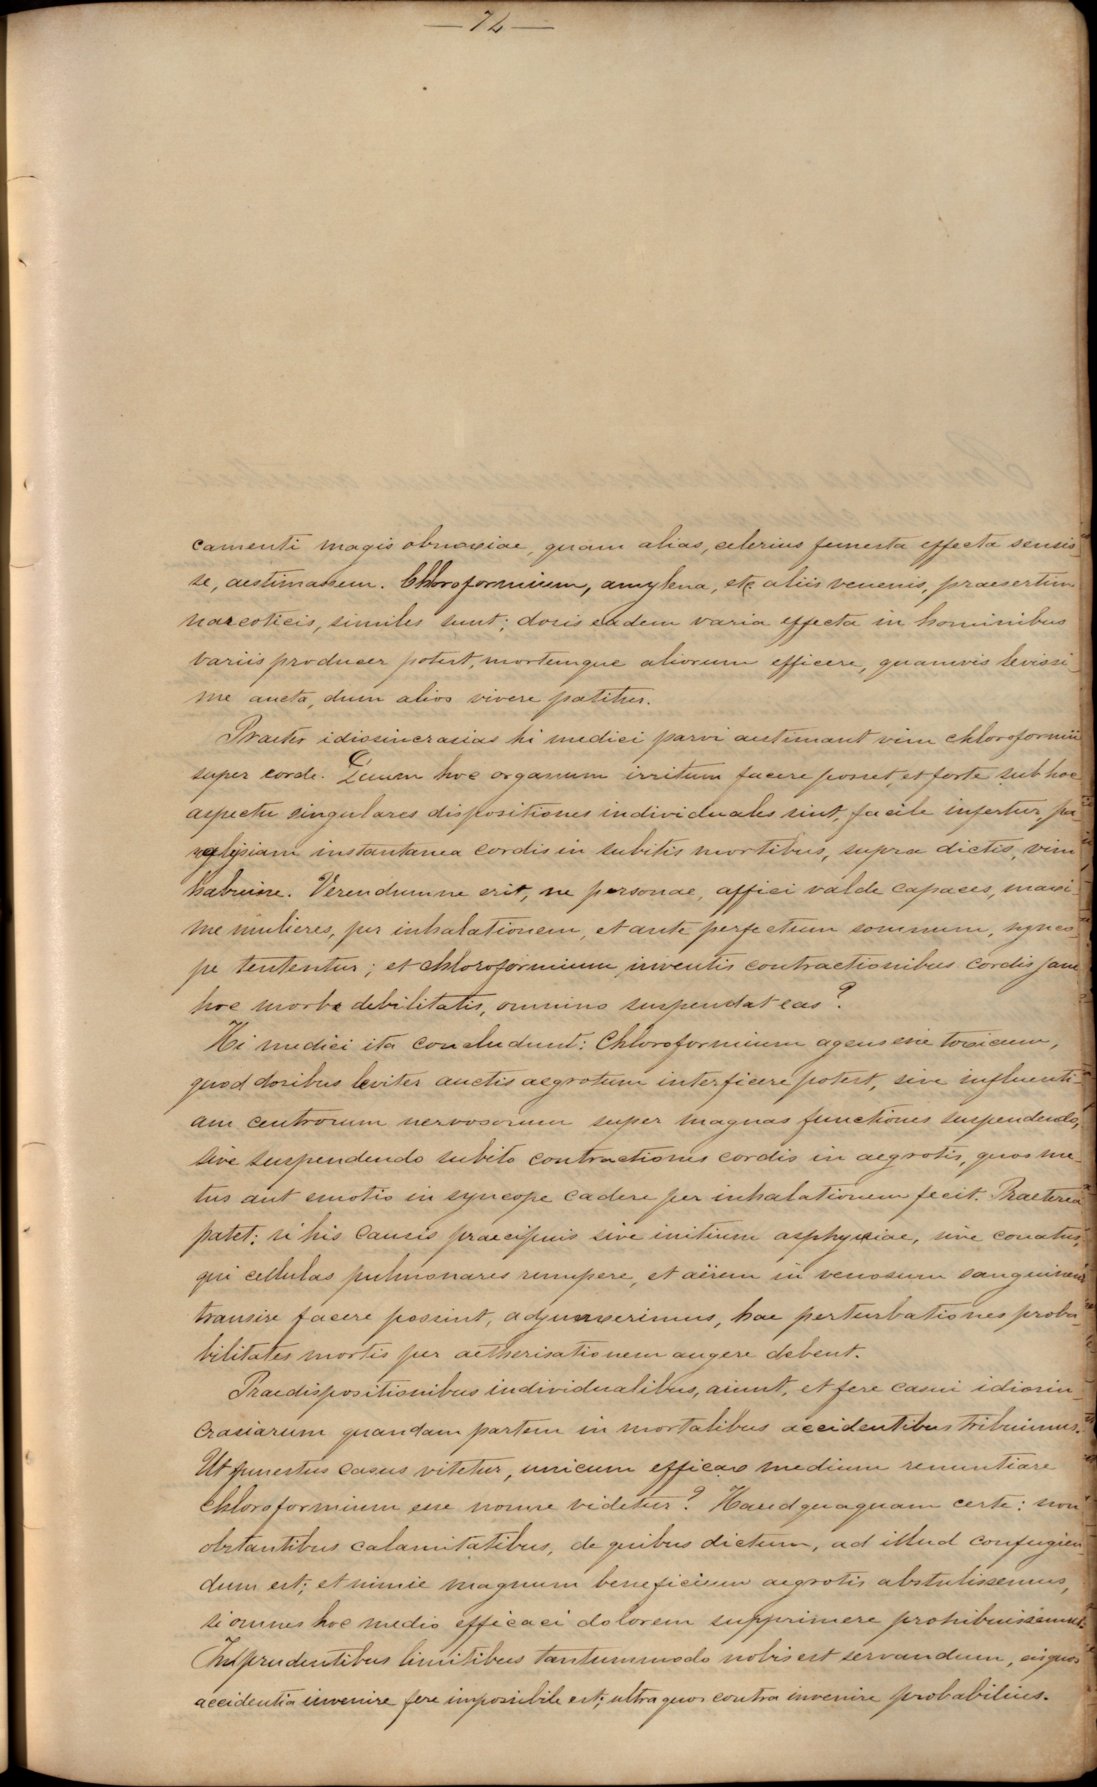 — 74 —
camenti magis obnoxiae, quam alias, celerius funesta effecta sensis-
se, aestimassem. Chloroformium, amylena, etc aliis venenis, praesertim
narcoticis, similes sunt; dosis eadem varia effecta in hominibus
variis producer potest, mortemque aliorum efficere, quamvis levissi-
me aucta, dum alios vivere patitur.
Praeter idiosincrasias hi medici parvi aestimant vim chloroformii
super corde. Quum hoc organum irritum facere posset, et forte sub hoc
aspectu singulares dispositiones individuales sint, facile infertur pa-
ralysiam instantanea cordis in subitis mortibus, supra dictis, vim
habuisse. Verendumne erit, ne personae, affici valde capaces, maxi-
me mulieres, per inhalationem, et ante perfectum somnum, synco-
pe tententur; et chloroformium, inventis contractionibus cordis jam
hoc morbo debilitatis, omnino suspendat eas?
Hi medici ita concludunt: Chloroformium agens esse toxicum,
quod dosibus leviter auctis aegrotum interficere potest, sive influenti-
am centrorum nervosorum super magnas functiones suspendendo,
sive suspendendo subito contractiones cordis in aegrotis, quos me-
tus aut emotio in syncope cadere per inhalationem fecit. Praeterea
patet: si his causis praecipuis sive initium asphyxiae, sive conatus,
qui cellulas pulmonares rumpere, et aërem in venosum sanguinem
transire facere possint, adjunxerimus, hae perturbationes proba-
bilitates mortis per aetherisationem augere debent.
Praedispositionibus individualibus, aiunt, et fere casui idiosin-
crasiarum quandam partem in mortalibus accidentibus tribuimus.
Ut funestus casus vitetur, unicum efficax medium renuntiare
chloroformium esse nonne videtur? Haudquaquam certe: non
obstantibus calamitatibus, de quibus dictum, ad illud confugien-
dum est; et nimie magnum beneficium aegrotis abstulissemus,
si omnes hoc medio efficaci dolorem supprimere prohibuissemus.
Prudentibus limitibus tantummodo nobis est servandum, cis quos
accidentia invenire fere impossibile est; ultra quos contra invenire probabilius.